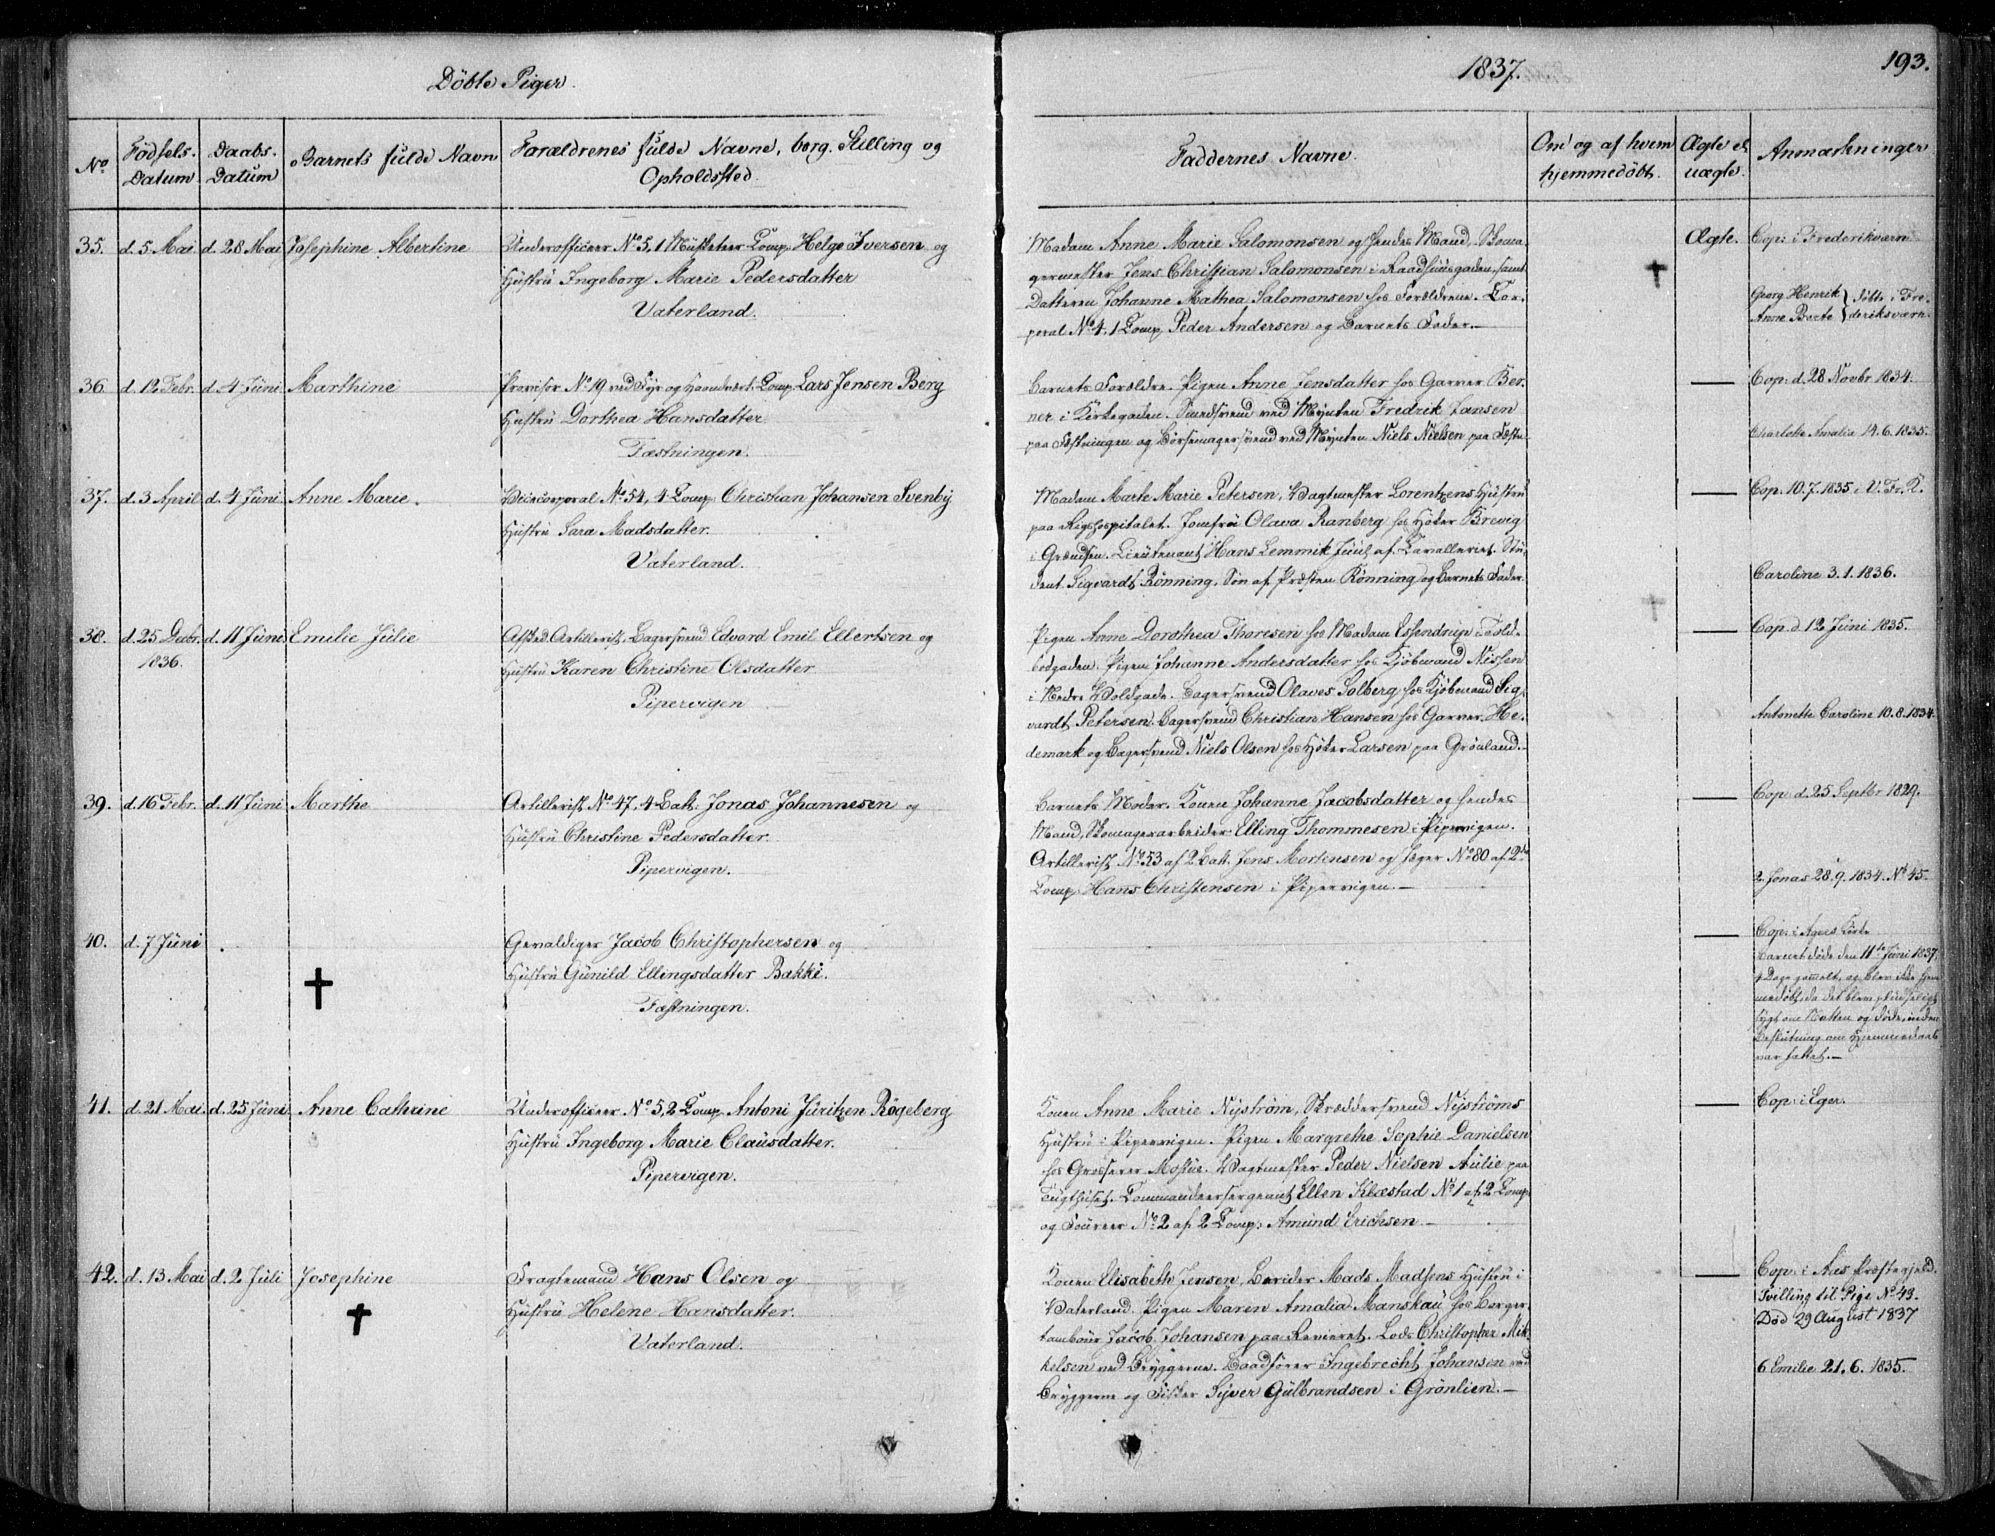 Døbte Piger.
1837.
193.
No
Fødsels-
Datum
Daabs-
Datum
Barnets fulde Navn
Forældrenes fulde Navne, borg. Stilling og
Opholdssted.
Faddernes Navne.
Om og af hvem
hjemmedøbt.
Ægte el.
uægte.
Anmærkninger
35. d. 5 Mai d. 28 Mai Josephine Albertine
Underofficeer No 5, 1 Musketeer Comp. Helge Iversen og
Hustru Ingeborg Marie Pedersdatter
Vaterland.
Madam Anne Marie Salomonsen og hendes Mand, Skoma-
germester Jens Christian Salomonsen i Raadhuusgaden, samt
Datteren Johanne Mathea Salomonsen hos Forældrene. Cor-
poral No 4, 1 Comp. Peder Andersen og Barnets Fader.
Ægte.
Cop: i Frederiksværn
Georg Henrik
Anne Berte
døbte i Fre-
deriksværn.
36. d. 12 Febr. d. 4 Juni Marthine
Provisor No 19 ved Fyr og Haandværk. Comp. Lars Jensen Berg
Hustru Dorthea Hansdatter
Fæstningen.
Barnets Forældre. Pigen Anne Jensdatter hos Garver Ber-
ner i Kirkegaden. Smedsvend ved Mynten Fredrik Jansen
paa Fæstningen og Børsemagersvend ved Mynten Niels Nielsen paa Fæstn.
Cop: d. 28 Novbr 1834.
Charlotte Amalia 14.6.1835.
37. d. 3 April d. 4 Juni. Anne Marie.
Vicecorporal No 54, 4 Comp. Christian Johansen Svenby
Hustru Sara Madsdatter.
Vaterland.
Madam Marte Marie Petersen, Vagtmester Lorentzens Hustru
paa Rigshospitalet. Jomfru Olava Ranberg hos Høker Brevig
i Grændsen. Lieutenant Hans Lemmik Juul af Cavalleriet. Stu-
dent Sigvardt Rønning, Søn af Præsten Rønning og Barnets Fader.
Cop. 10.7.1835 i V. Fr. K.
Caroline 3.1.1836.
38. d. 25 Decbr. d. 11 Juni Emilie Julie
1836.
Afsked. Artillerist, Bagersvend Edvard Emil Ellertsen og
Hustru Karen Christine Olsdatter
Pipervigen
Pigen Anne Dorothea Thoresen hos Madam Essendrup i Told-
bodgaden. Pigen Johanne Andersdatter hos Kjøbmand Nissen
i Nedre Voldgade. Bagersvend Olaves Solberg hos Kjøbmand Sig-
vardt Petersen. Bagersvend Christian Hansen hos Garver He-
demark og Bagersvend Niels Olsen hos Høker Larsen paa Grønland.
Cop d 12 Juni 1835.
Antonette Caroline 10.8.1834.
39. d. 16 Febr. d. 11 Juni Marthe
Artillerist No 47, 4 Batt. Jonas Johannesen og
Hustru Christine Pedersdatter.
Pipervigen.
Barnets Moder. Konen Johanne Jacobsdatter og hendes
Mand, Skomagerarbeider Elling Thommesen i Pipervigen.
Artillerist No 53 af 2 Batt. Jens Mortensen og Jæger No 80 af 2de
Comp. Hans Christensen i Pipervigen.
Cop: d. 25 Septbr 1829.
2 Jonas 28.9.1834. No 45.
40. d. 7 Juni
Gevaldiger Jacob Christophersen og
Hustru Gunild Ellingsdatter Bakke.
Fæstningen.
Cop: i Agers Kirke
Barnet døde den 11te Juni 1837,
4 Dage gammelt, og blev ikke hjem-
medøbt, da det blev pludseligt
sygt om Natten og døde, inden
Beslutning om Hjemmedaab
var fattet.
41. d. 21 Mai. d. 25 Juni Anne Cathrine
Underofficeer No 5, 2 Comp. Antoni Juritzen Røgeberg
Hustru Ingeborg Marie Clausdatter.
Pipervigen.
Konen Anne Marie Nyström, Skræddersvend Nyströms
Hustru i Pipervigen. Pigen Margrethe Sophie Danielsen
hos Grosserer Mosue. Vagtmester Peder Nielsen Aulie paa
Tugthuset. Commandeersergeant Ellen Klæstad No 1 af 2 Comp.
og Foureer No 2 af 2 Comp: Amund Erichsen
Cop: i Eger.
42. d. 13 Mai d. 2 Juli Josephine
Fragtemand Hans Olsen og
Hustru Helene Hansdatter.
Vaterland.
Konen Elisabeth Jensen, Berider Mads Madsens Hustru i
Vaterland. Pigen Maren Amalia Manskau hos Borger-
tambour Jacob Johansen paa Revieret. Lods Christopher Mik-
kelsen ved Bryggerne. Baadfører Ingebrecht Johansen ved
Bryggerne og Fisker Syver Gulbrandsen i Grønlien.
Cop: i Aas Præstegjeld.
Tvilling til Pige No 43.
Død 29 August 1837
6 Emilie 21.6.1835.